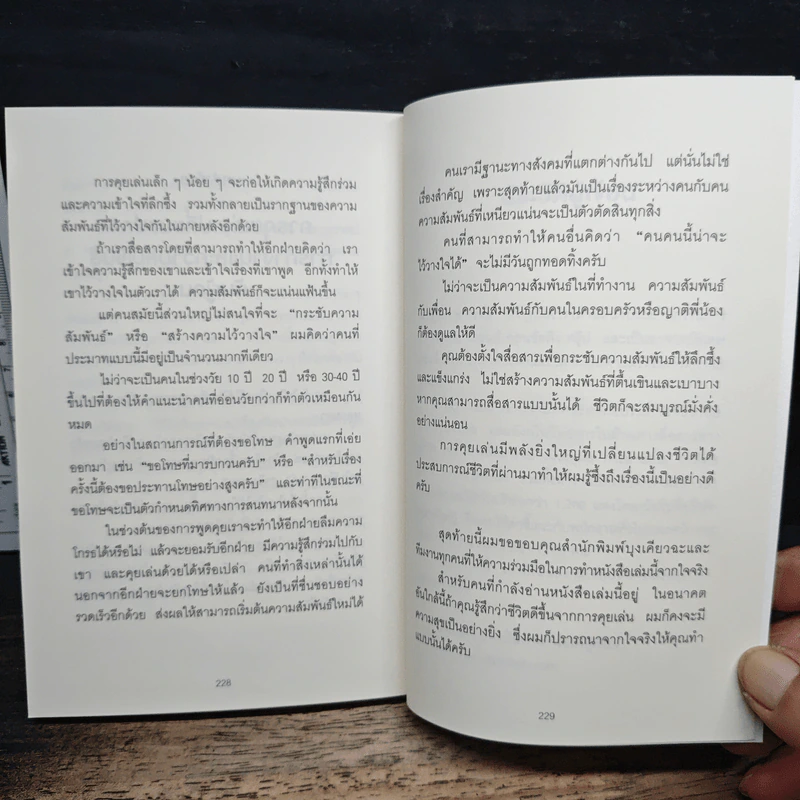 การคุยเล่นเล็ก ๆ น้อย ๆ จะก่อให้เกิดความรู้สึกร่วม
และความเข้าใจที่ลึกซึ้ง รวมทั้งกลายเป็นรากฐานของความ
สัมพันธ์ที่ไว้วางใจกันในภายหลังอีกด้วย
ถ้าเราสื่อสารโดยที่สามารถทำให้อีกฝ่ายคิดว่า เรา
เข้าใจความรู้สึกของเขาและเข้าใจเรื่องที่เขาพูด อีกทั้งทำให้
เขาไว้วางใจในตัวเราได้ ความสัมพันธ์ก็จะแน่นแฟ้นขึ้น
แต่คนสมัยนี้ส่วนใหญ่ไม่สนใจที่จะ “กระชับความ
สัมพันธ์” หรือ “สร้างความไว้วางใจ” ผมคิดว่าคนที่
ประมาทแบบนี้มีอยู่เป็นจำนวนมากทีเดียว
ไม่ว่าจะเป็นคนในช่วงวัย 10 ปี 20 ปี หรือ 30-40 ปี
ขึ้นไปที่ต้องให้คำแนะนำคนที่อ่อนวัยกว่าก็ทำตัวเหมือนกัน
หมด
อย่างในสถานการณ์ที่ต้องขอโทษ คำพูดแรกที่เอ่ย
ออกมา เช่น “ขอโทษที่มารบกวนครับ” หรือ “สำหรับเรื่อง
ครั้งนี้ต้องขอประทานโทษอย่างสูงครับ” และท่าทีในขณะที่
ขอโทษจะเป็นตัวกำหนดทิศทางการสนทนาหลังจากนั้น
ในช่วงต้นของการพูดคุยเราจะทำให้อีกฝ่ายลืมความ
โกรธได้หรือไม่ แล้วจะยอมรับอีกฝ่าย มีความรู้สึกร่วมไปกับ
เขา และคุยเล่นด้วยได้หรือเปล่า คนที่ทำสิ่งเหล่านั้นได้
นอกจากอีกฝ่ายจะยกโทษให้แล้ว ยังเป็นที่ชื่นชอบอย่าง
รวดเร็วอีกด้วย ส่งผลให้สามารถเริ่มต้นความสัมพันธ์ใหม่ได้
228
คนเรามีฐานะทางสังคมที่แตกต่างกันไป แต่นั่นไม่ใช่
เรื่องสำคัญ เพราะสุดท้ายแล้วมันเป็นเรื่องระหว่างคนกับคน
ความสัมพันธ์ที่เหนียวแน่นจะเป็นตัวตัดสินทุกสิ่ง
คนที่สามารถทำให้คนอื่นคิดว่า “คนคนนี้น่าจะ
ไว้วางใจได้” จะไม่มีวันถูกทอดทิ้งครับ
ไม่ว่าจะเป็นความสัมพันธ์ในที่ทำงาน ความสัมพันธ์
กับเพื่อน ความสัมพันธ์กับคนในครอบครัวหรือญาติพี่น้อง
ก็ต้องดูแลให้ดี
คุณต้องตั้งใจสื่อสารเพื่อกระชับความสัมพันธ์ให้ลึกซึ้ง
และแข็งแกร่ง ไม่ใช่สร้างความสัมพันธ์ที่ตื้นเขินและเบาบาง
หากคุณสามารถสื่อสารแบบนั้นได้ ชีวิตก็จะสมบูรณ์มั่งคั่ง
อย่างแน่นอน
การคุยเล่นมีพลังยิ่งใหญ่ที่เปลี่ยนแปลงชีวิตได้
ประสบการณ์ชีวิตที่ผ่านมาทำให้ผมรู้ซึ้งถึงเรื่องนี้เป็นอย่างดี
ครับ
สุดท้ายนี้ผมขอขอบคุณสำนักพิมพ์บุงเคียวฉะและ
ทีมงานทุกคนที่ให้ความร่วมมือในการทำหนังสือเล่มนี้จากใจจริง
สำหรับคนที่กำลังอ่านหนังสือเล่มนี้อยู่ ในอนาคต
อันใกล้นี้ถ้าคุณรู้สึกว่าชีวิตดีขึ้นจากการคุยเล่น ผมก็คงจะมี
ความสุขเป็นอย่างยิ่ง ซึ่งผมก็ปรารถนาจากใจจริงให้คุณทำ
แบบนั้นได้ครับ
229